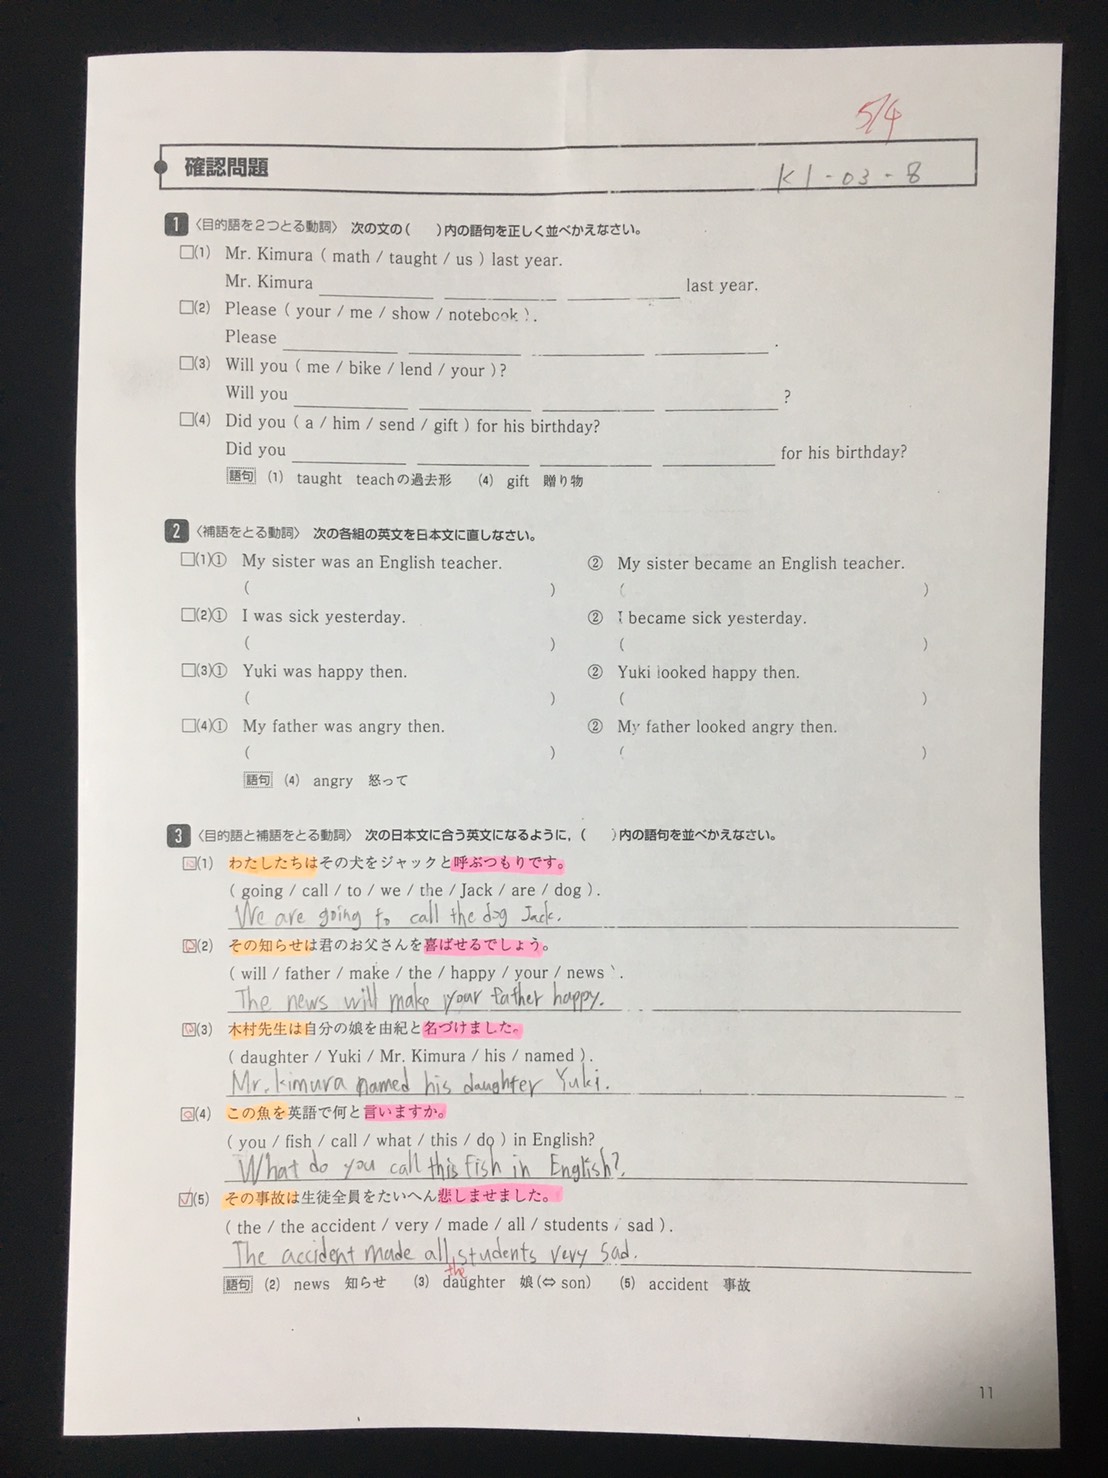 5/4
確認問題
K1-03-8
1 〈目的語を2つとる動詞〉 次の文の( )内の語句を正しく並べかえなさい。
□(1) Mr. Kimura ( math / taught / us ) last year.
Mr. Kimura last year.
□(2) Please ( your / me / show / notebook ).
Please .
□(3) Will you ( me / bike / lend / your )?
Will you ?
□(4) Did you ( a / him / send / gift ) for his birthday?
Did you for his birthday?
語句 (1) taught teachの過去形 (4) gift 贈り物
2 〈補語をとる動詞〉 次の各組の英文を日本文に直しなさい。
□(1)① My sister was an English teacher. ② My sister became an English teacher.
( ) ( )
□(2)① I was sick yesterday. ② I became sick yesterday.
( ) ( )
□(3)① Yuki was happy then. ② Yuki looked happy then.
( ) ( )
□(4)① My father was angry then. ② My father looked angry then.
( ) ( )
語句 (4) angry 怒って
3 〈目的語と補語をとる動詞〉 次の日本文に合う英文になるように,( )内の語句を並べかえなさい。
□(1) わたしたちはその犬をジャックと呼ぶつもりです。
( going / call / to / we / the / Jack / are / dog ).
We are going to call the dog Jack.
□(2) その知らせは君のお父さんを喜ばせるでしょう。
( will / father / make / the / happy / your / news ).
The news will make your father happy.
□(3) 木村先生は自分の娘を由紀と名づけました。
( daughter / Yuki / Mr. Kimura / his / named ).
Mr. Kimura named his daughter Yuki.
□(4) この魚を英語で何と言いますか。
( you / fish / call / what / this / do ) in English?
What do you call this fish in English?
□(5) その事故は生徒全員をたいへん悲しませました。
( the / the accident / very / made / all / students / sad ).
The accident made all students very sad.
the
語句 (2) news 知らせ (3) daughter 娘(⇔ son) (5) accident 事故
11